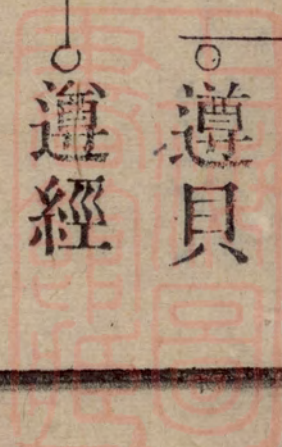 遵貝
遵經